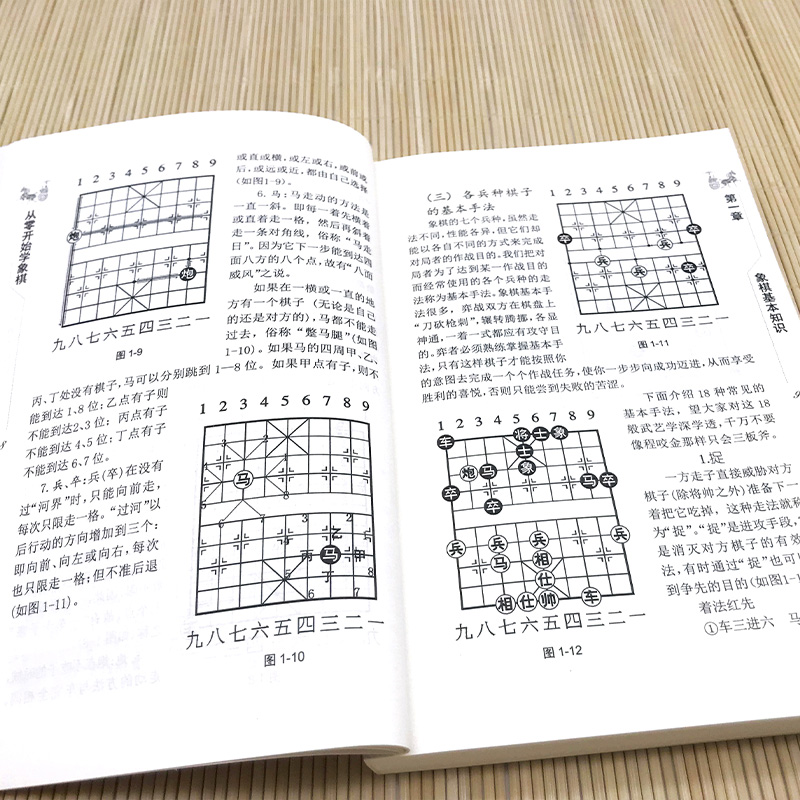 从零开始学象棋
1 2 3 4 5 6 7 8 9
炮
炮
九八七六五四三二一
图 1-9
或直或横，或左或右，或前或
后，或远或近，都由自己选择
(如图1-9)。
6. 马：马走动的方法是
一直一斜。即每一着先横着
或直着走一格，然后再斜着
走一条对角线，俗称“马走
日”。因为它下一步能到达四
面八方的八个点，故有“八面
威风”之说。
如果在一横或一直的地
方有一个棋子（无论是自己
的还是对方的），马都不能走
过去，俗称“蹩马腿”(如图
1-10)。如果马的四周甲、乙、
丙、丁处没有棋子，马可以分别跳到 1—8 位。如果甲点有子，则不
能到达1、8位；乙点有子则
不能到达2、3位；丙点有子
不能到达4、5位；丁点有子
不能到达6、7位。
7. 兵、卒：兵(卒)在没有
过“河界”时，只能向前走，
每次只限走一格。“过河”以
后行动的方向增加到三个：
即向前、向左或向右，每次
也只限走一格；但不准后退
(如图1-11)。
1 2 3 4 5 6 7 8 9
马
乙
丙 马 甲
丁
九八七六五四三二一
图 1-10
第一章
象棋基本知识
(三) 各兵种棋子
的基本手法
象棋的七个兵种，虽然走
法不同，性能各异，但它们却
能以各自不同的方式来完成
对局者的作战目的。我们把对
局者为了达到某一作战目的
而经常使用的各个兵种的走
法称为基本手法。象棋基本手
法很多，弈战双方在棋盘上
“刀砍枪刺”，辗转腾挪，各显
神通，一着一式都应有攻守目
的。弈者必须熟练掌握基本手
法，只有这样棋子才能按照你
的意图去完成一个个作战任务，使你一步步向成功迈进，从而享受
胜利的喜悦，否则只能尝到失败的苦涩。
1 2 3 4 5 6 7 8 9
卒 卒
兵 兵
兵 卒 卒
九八七六五四三二一
图 1-11
1 2 3 4 5 6 7 8 9
车 将 士 象
士
炮 马 象 马
卒 卒 卒
卒
兵 兵 兵 兵
马 相
仕
相 仕 帅 车
九八七六五四三二一
图 1-12
下面介绍 18 种常见的
基本手法，望大家对这 18
般武艺学深学透，千万不要
像程咬金那样只会三板斧。
1.捉
一方走子直接威胁对方
棋子(除将帅之外)准备下一
着把它吃掉，这种走法就称
为“捉”。“捉”是进攻手段，
是消灭对方棋子的有效
法，有时通过“捉”也可
到争先的目的(如图1-1
着法红先
①车三进六 马